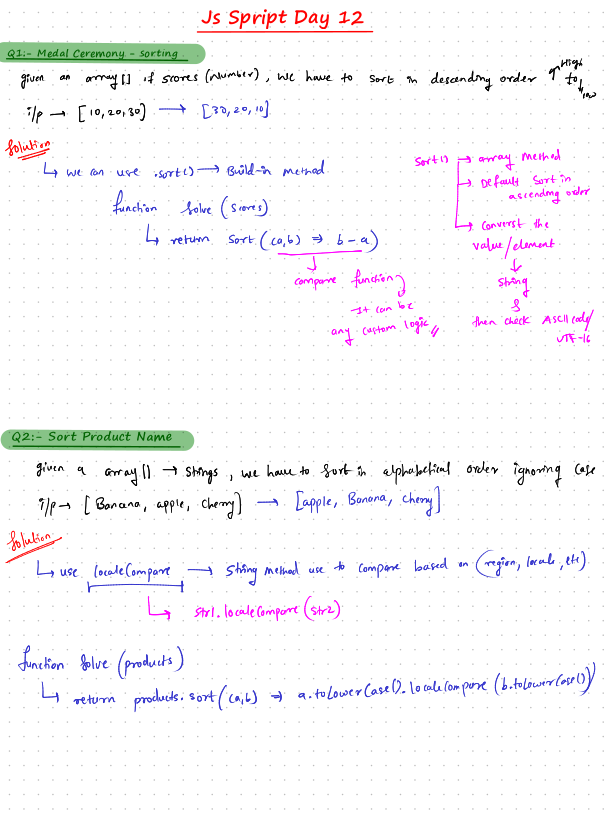 Js Spript Day 12
Q1:- Medal Ceremony - sorting
given an array[] if scores (Number), we have to sort in descending order ↑ High to ↓ low
i/p → [10,20,30] → [30,20,10]
Solution
↳ we can use .sort() → Build-in method
function solve (scores)
↳ return sort ((a,b) ⇒ b-a)
↓
compare function
→ It can be
any custom logic //
sort() → array method
→ Default sort in
ascending order
↳ convert the
value/element
↓
string
&
then check ASCII code/
UTF-16
Q2:- Sort Product Name
given a array[] → strings, we have to sort in alphabetical order ignoring case
i/p → [Banana, apple, cherry] → [apple, Banana, cherry]
Solution
↳ use localeCompare → string method use to compare based on (region, locale, etc)
↳ str1.localeCompare(str2)
function solve (products)
↳ return products.sort((a,b) ⇒ a.toLowerCase().localeCompare (b.toLowerCase()))